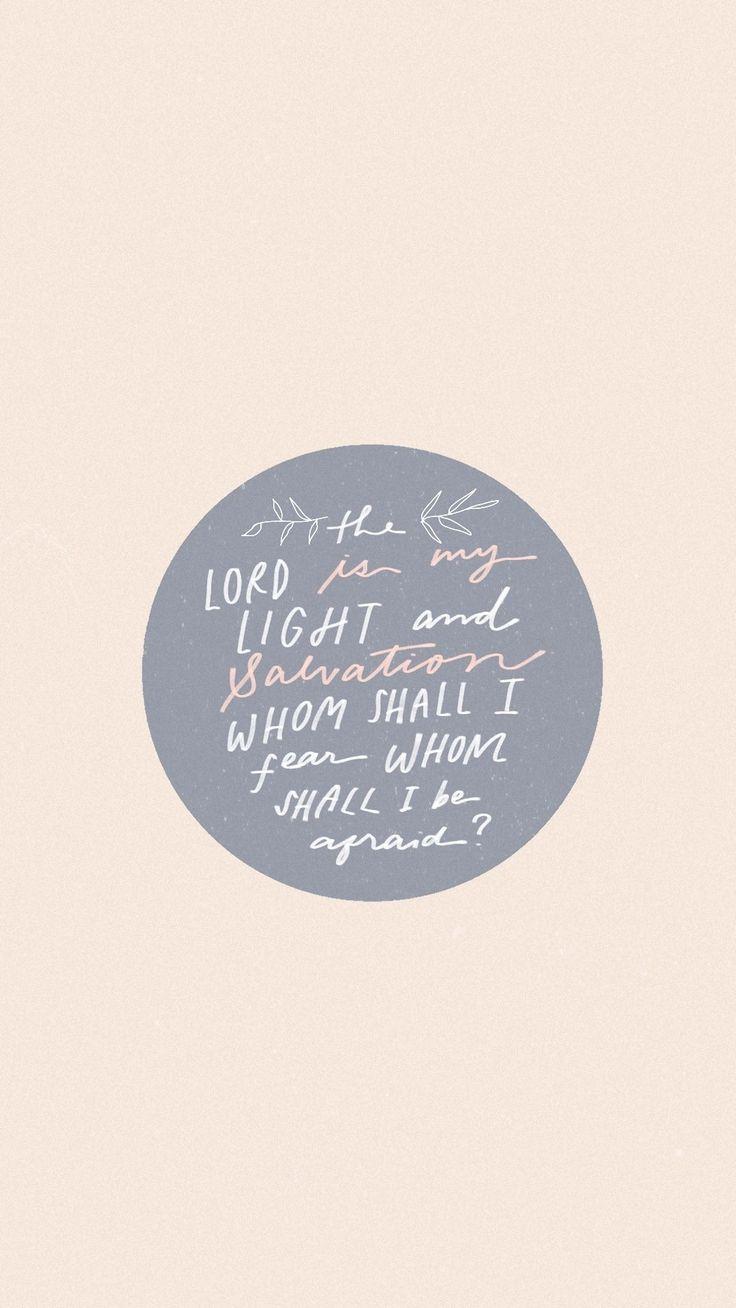 the
LORD is my
LIGHT and
Salvation
WHOM SHALL I
fear WHOM
SHALL I be
afraid?